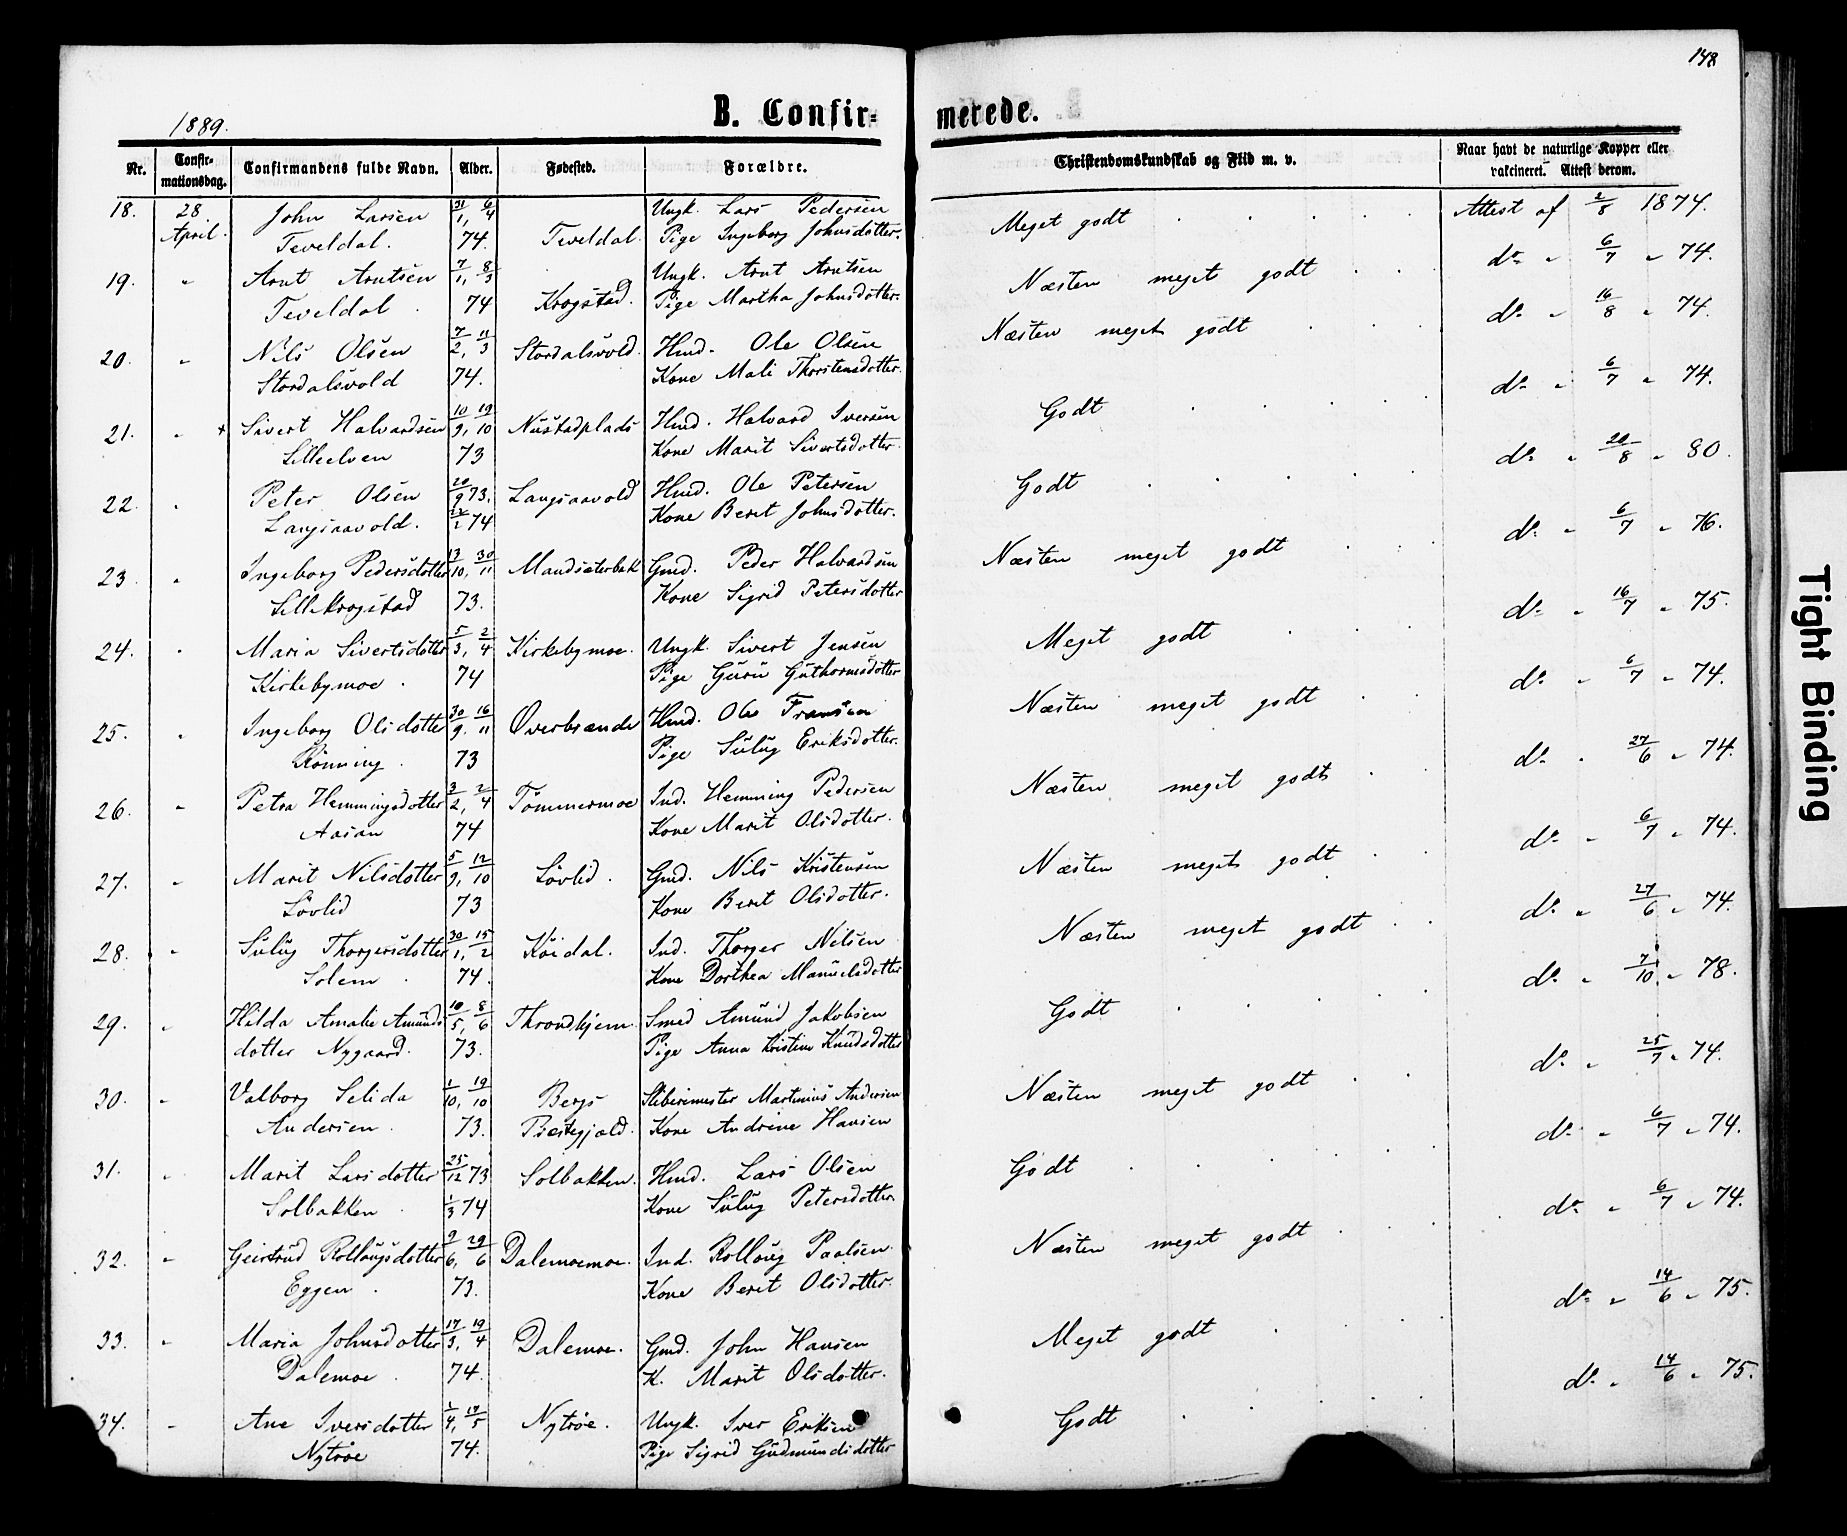 148
1889.
B. Confir-
merede.
Nr. Confir-mationsdag. Confirmandens fulde Navn. Alder. Fødested. Forældre. Christendomskundskab og Flid m. v. Naar havt de naturlige Kopper eller vakcineret. Attest derom.
18. 28 John Larsen 31/1, 6/4 Ungk. Lars Pedersen Meget godt Attest af 2/8 1874.
April. Teveldal. 74. Teveldal. Pige Ingeborg Johnsdotter.
19. " Arnt Arntsen 7/1, 8/3 Ungk. Arnt Arntsen Næsten meget godt do " 6/7 " 74.
Teveldal 74 Krogstad. Pige Martha Johnsdotter.
20. " Nils Olsen 7/2, 11/3 Stordalsvold. Hmd. Ole Olsen Næsten meget godt do " 16/8 " 74.
Stordalsvold 74. Kone Mali Thorstensdotter.
21. " + Sivert Halvardsen 10/9, 19/10 Nustadplads Hmd. Halvard Iversen Godt do " 6/7 " 74.
Lilleelven 73 Kone Marit Sivertsdotter.
22. " Peter Olsen 20/9 73. Langsaavold Hmd. Ole Petersen Godt do " 20/8 " 80.
Langsaavold. 22/2 74 Kone Beret Johnsdotter.
23. " Ingeborg Pedersdotter 13/10, 30/11 Mandsæterbak Gmd. Peder Halvardsen Næsten meget godt do " 6/7 " 76.
Lillekrogstad 73. Kone Sigrid Petersdotter
24. " Maria Sivertsdotter 5/3, 2/4 Kirkebymoe. Ungk. Sivert Jensen Meget godt do " 16/7 " 75.
Kirkebymoe. 74 Pige Guru Guthormsdotter
25. " Ingeborg Olsdotter 30/9, 16/11 Overbrænde Hmd. Ole Fransen Næsten meget godt do " 6/7 " 74.
Rönning. 73 Pige Sulug Eriksdotter.
26. " Petra Hemmingsdotter 3/2, 2/4 Tömmermoe Ind. Hemming Pedersen Næsten meget godt do " 27/6 " 74.
Aasan 74 Kone Marit Olsdotter.
27. " Marit Nilsdotter 5/9, 12/10 Lövlid. Gmd. Nils Kristensen Næsten meget godt do " 6/7 " 74.
Lövlid 73 Kone Beret Olsdotter.
28. " Sulug Thorgersdotter 30/1, 15/2 Köidal. Ind. Thorger Nilsen Næsten meget godt do " 27/6 " 74.
Solem. 74. Kone Dorthea Manuelsdotter
29. " Hilda Amalie Amunds 10/5, 8/6 Throndhjem. Smed Amund Jakobsen Godt do " 7/10 " 78.
dotter Nygaard. 73. Pige Anna Kristine Knudsdotter
30. " Valborg Selida 1/10, 19/10 Bergs Martinius Andersen Næsten meget godt do " 25/7 " 74.
Andersen. 73. Præstegjæld. Kone Andrine Hansen
31. " Marit Larsdotter 25/12 73 Solbakken. Hmd. Lars Olsen Godt do " 6/7 " 74.
Solbakken. 1/3 74 Kone Sulug Petersdotter.
32. " Geirtrud Rollougsdotter 2/6, 29/6 Dalemoemoe. Ind. Rolloug Paalsen. Næsten meget godt do " 6/7 " 74.
Eggen. 73. Kone Beret Olsdotter.
33. " Maria Johnsdotter 17/3, 19/4 Dalemoe. Gmd. John Hansen Meget godt do " 14/6 " 75.
Dalemoe. 74. K. Marit Olsdotter.
34. " Ane Iversdotter 1/4, 19/5 Nytröe. Ungk. Iver Eriksen Godt do " 14/6 " 75.
Nytröe 74. Pige Sigrid Gudmundsdotter
Tight Binding